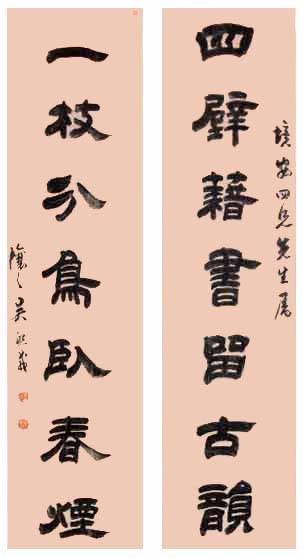 境安四兄先生屬
四壁藉書留古韻
一枝分鳥臥春煙
吳熙載